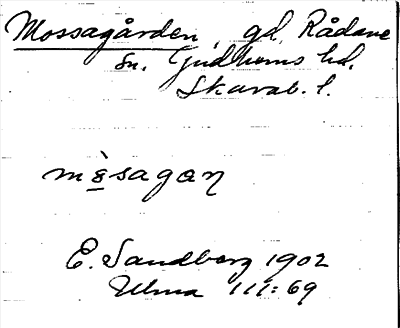 Mossagården, gd. Rådane
sn. Gudhems hd.
Skarab. l.
E. Sandberg 1902
Ulma 111:69